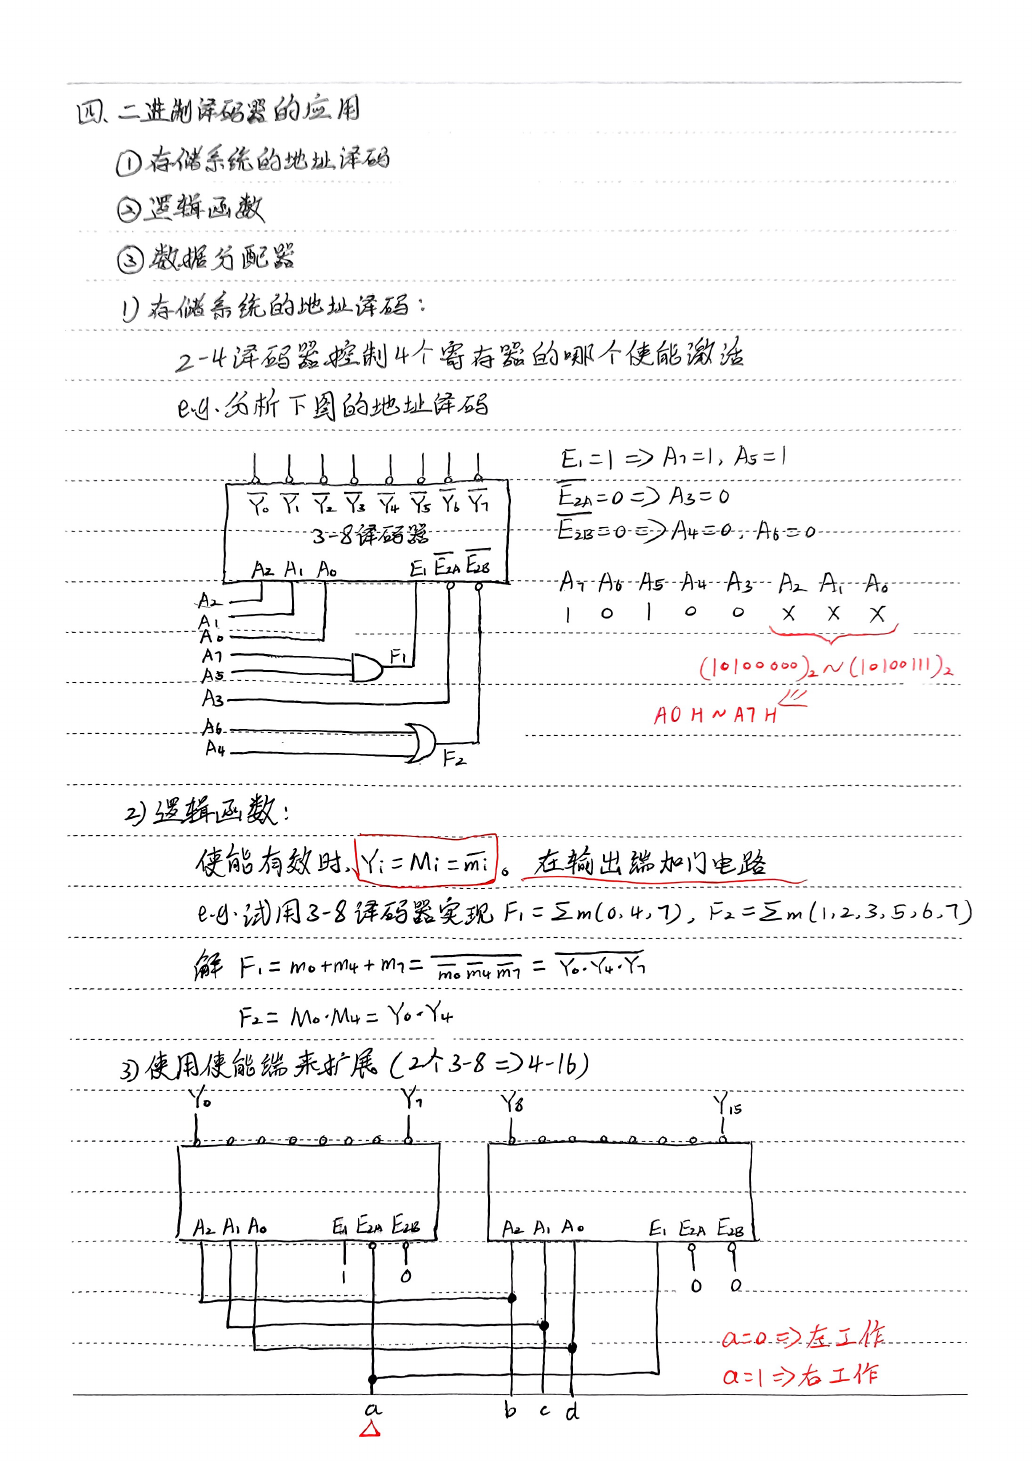 四、二进制译码器的应用
①存储系统的地址译码
②逻辑函数
③数据分配器
1)存储系统的地址译码:
2-4译码器控制4个寄存器的哪个使能激活
e.g.分析下图的地址译码
E₁=1 => A₇=1, A₅=1
E̅₂A̅=0 => A₃=0
E̅₂B̅=0 => A₄=0, A₆=0
Y̅₀ Y̅₁ Y̅₂ Y̅₃ Y̅₄ Y̅₅ Y̅₆ Y̅₇
3-8译码器
A₂ A₁ A₀ E₁ E̅₂A̅ E̅₂B̅
A₂
A₁
A₀
A₇
A₅
F₁
A₃
A₆
A₄
F₂
A₇ A₆ A₅ A₄ A₃ A₂ A₁ A₀
1 0 1 0 0 X X X
(10100000)₂~(10100111)₂
A0H~A7H
2)逻辑函数:
使能有效时、Yi=Mi=m̅i̅。在输出端加门电路
e.g.试用3-8译码器实现 F₁=Σm(0,4,7), F₂=Σm(1,2,3,5,6,7)
解 F₁=m₀+m₄+m₇=\overline{m̅₀ m̅₄ m̅₇}=\overline{Y₀·Y₄·Y₇}
F₂=M₀·M₄=Y₀·Y₄
3)使用使能端来扩展(2个3-8=>4-16)
Y₀ Y₇ Y₈ Y₁₅
A₂ A₁ A₀ E₁ E̅₂A̅ E̅₂B̅ A₂ A₁ A₀ E₁ E̅₂A̅ E̅₂B̅
1 0 0 0
a=0=>左工作
a=1=>右工作
a b c d